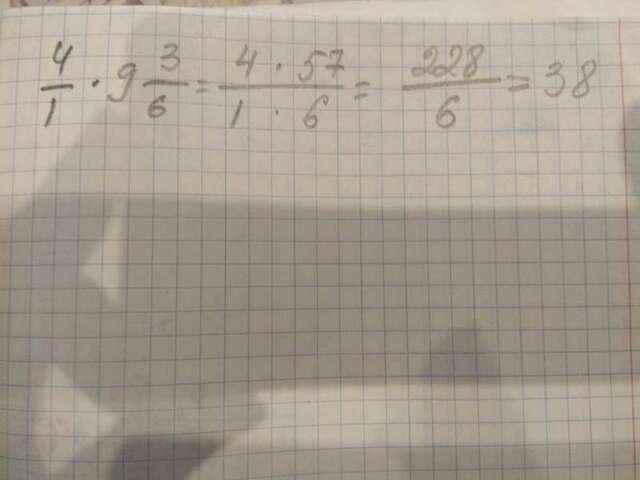 4/1 · 9 3/6 = 4 · 57 / 1 · 6 = 228/6 = 38